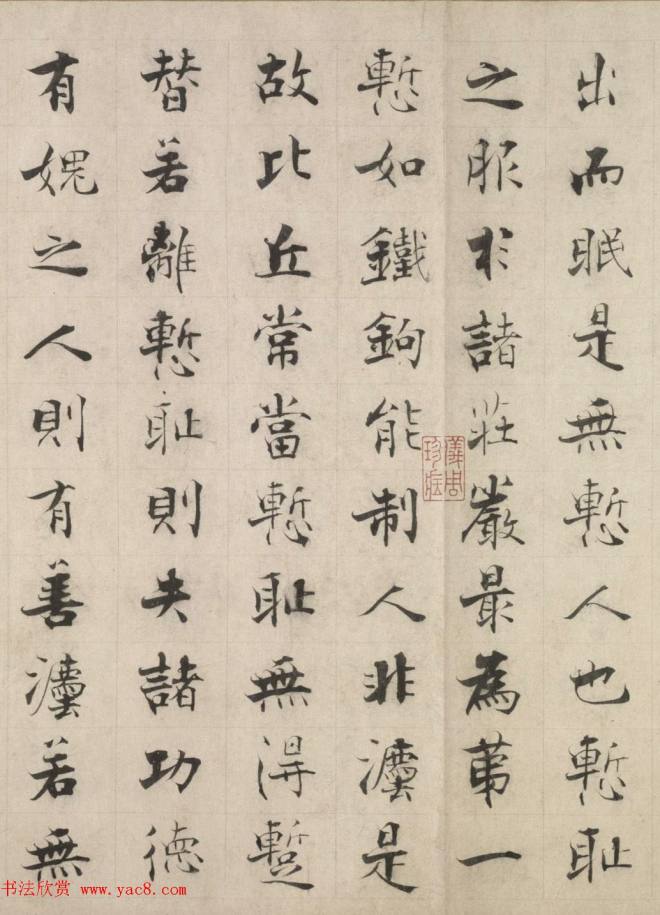 出而眠是無慙人也慙耻
之服於諸莊嚴最為苐一
慙如鐵鉤能制人非灋是
故比丘常當慙耻無得蹔
替若離慙耻則失諸功徳
有媿之人則有善灋若無
儀周
珍藏
书法欣赏 www.yac8.com